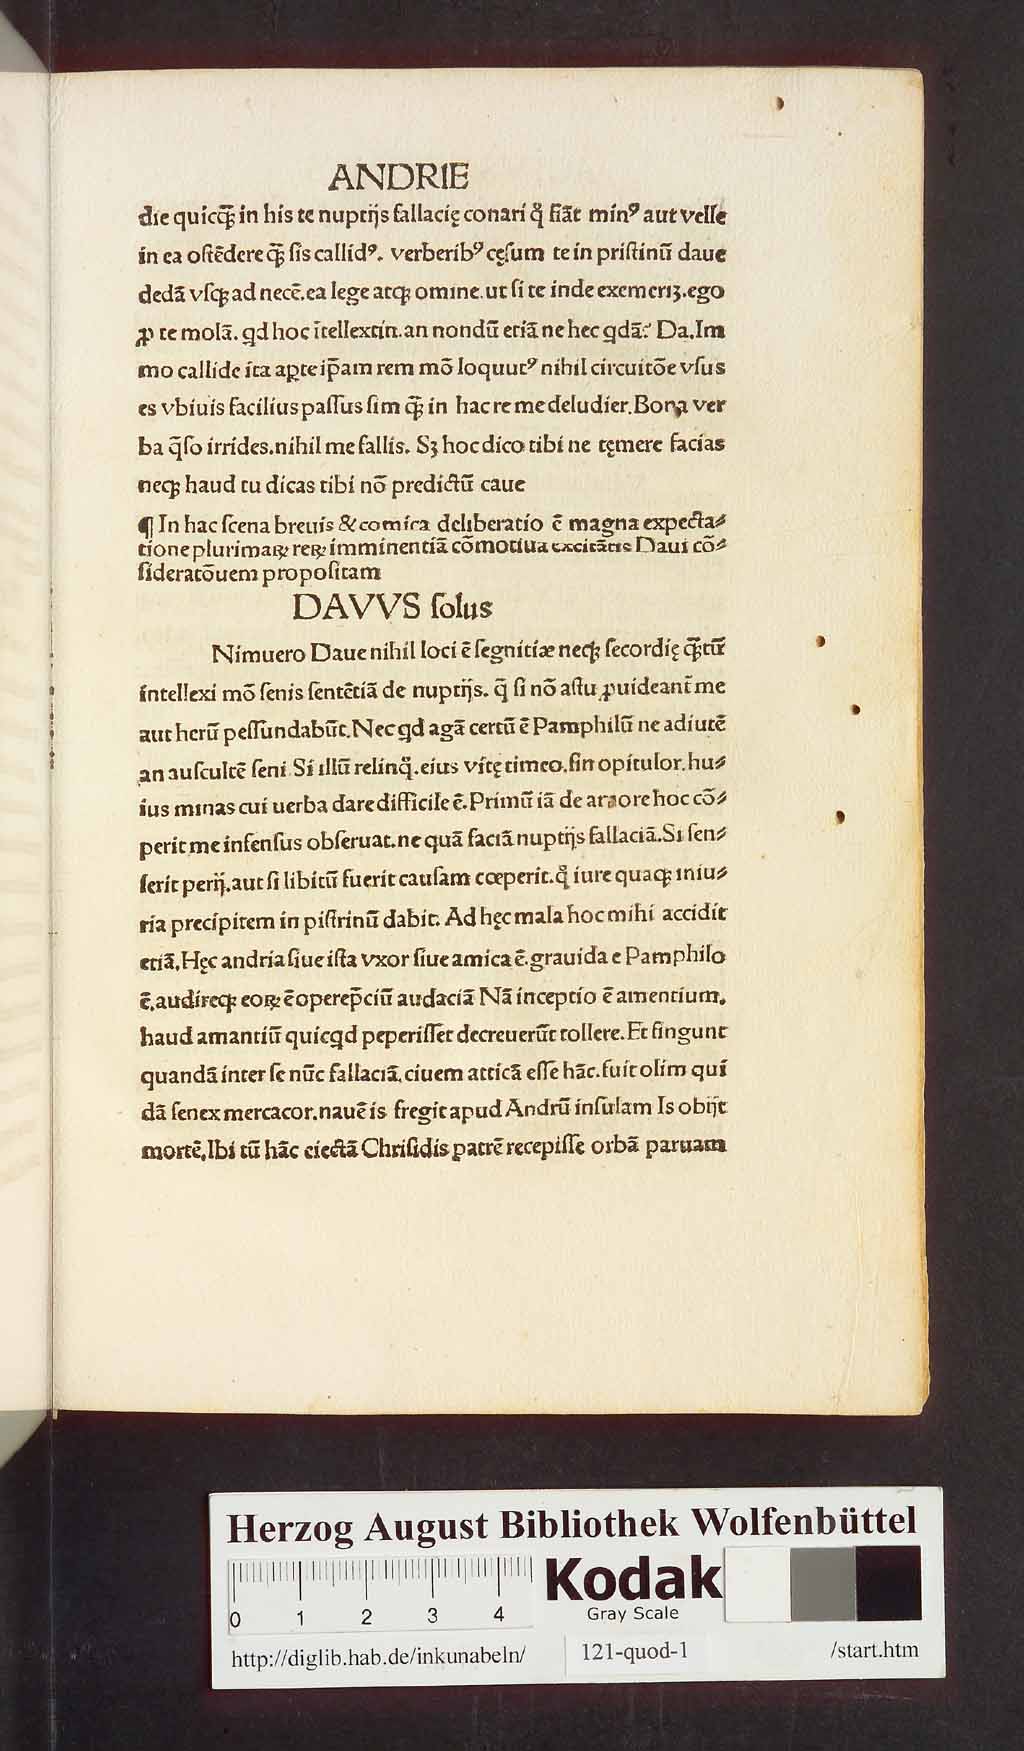 ANDRIE
die quicq̃ꝫ in his te nuptijs fallacię conari q̊ fiãt minꝰ aut velle
in ea ostẽdere q̃ꝫ sis callidꝰ. verberibꝰ cęsum te in pristinũ daue
dedã vsqꝫ ad necẽ. ea lege atqꝫ omine. ut si te inde exemeriꝫ. ego
ꝓ te molã. qd hoc ĩtellextin. an nondũ etiã ne hec qdã? Da. Im
mo callide ita aꝑte ip̃am rem mõ loquutꝰ nihil circuitõe vsus
es vbiuis facilius passus sim q̃ꝫ in hac re me deludier. Bona ver
ba q̃so irrides. nihil me fallis. Sꝫ hoc dico tibi ne tęmere facias
neqꝫ haud tu dicas tibi nõ predictũ caue
¶ In hac scena breuis & comica deliberatio ẽ magna expecta⸗
tione plurimaꝝ reꝝ imminentiã cõmotiua excitãtis Daui cõ⸗
sideratõuem propositam
DAVVS solus
Nimuero Daue nihil loci ẽ segnitiæ neqꝫ secordię q̃ꝫtũ
intellexi mõ senis sentẽtiã de nuptijs. q̃ si nõ astu ꝓuideant̃ me
aut herũ pessundabũt. Nec qd agã certũ ẽ Pamphilũ ne adiutẽ
an auscultẽ seni. Si illũ relinq̃. eius vitę timeo. sin opitulor. hu⸗
ius minas cui uerba dare difficile ẽ. Primũ iã de amore hoc cõ⸗
perit me infensus obseruat. ne quã faciã nuptijs fallaciã. Si sen⸗
serit perij. aut si libitũ fuerit causam cœperit. q̊ iure quaqꝫ iniu⸗
ria precipitem in pistrinũ dabit. Ad hęc mala hoc mihi accidit
etiã. Hęc andria siue ista vxor siue amica ẽ. grauida e Pamphilo
ẽ. audireqꝫ eoꝝ ẽ operep̃ciũ audaciã Nã inceptio ẽ amentium.
haud amantiũ quicqd peperisset decreuerũt tollere. Et fingunt
quandã inter se nũc fallaciã. ciuem atticã esse hãc. fuit olim qui
dã senex mercacor. nauẽ is fregit apud Andrũ insulam Is obijt
mortẽ. Ibi tũ hãc eiectã Chrisidis patrẽ recepisse orbã paruam
Herzog August Bibliothek Wolfenbüttel
0 1 2 3 4
Kodak
Gray Scale
http://diglib.hab.de/inkunabeln/ 121-quod-1 /start.htm